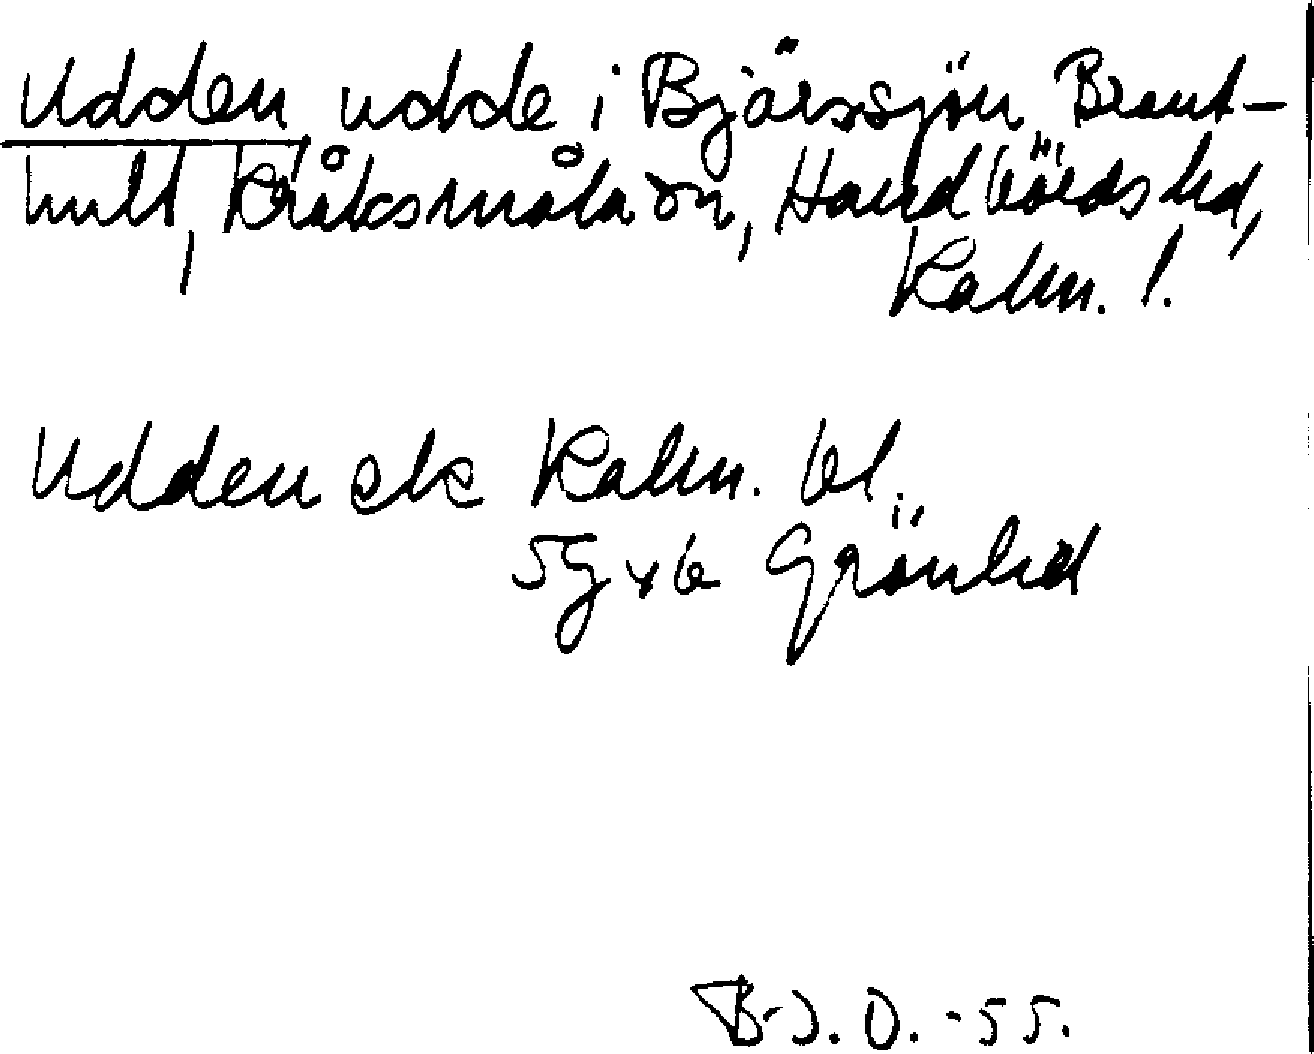 Udden, udde i Bjärssjön, Brant-
hult, Kråksmåla sn, Handbörds hd,
Kalm. l.
Udden ek Kalm. bl.
5G x6 Grönlid
B-J.O. -55.